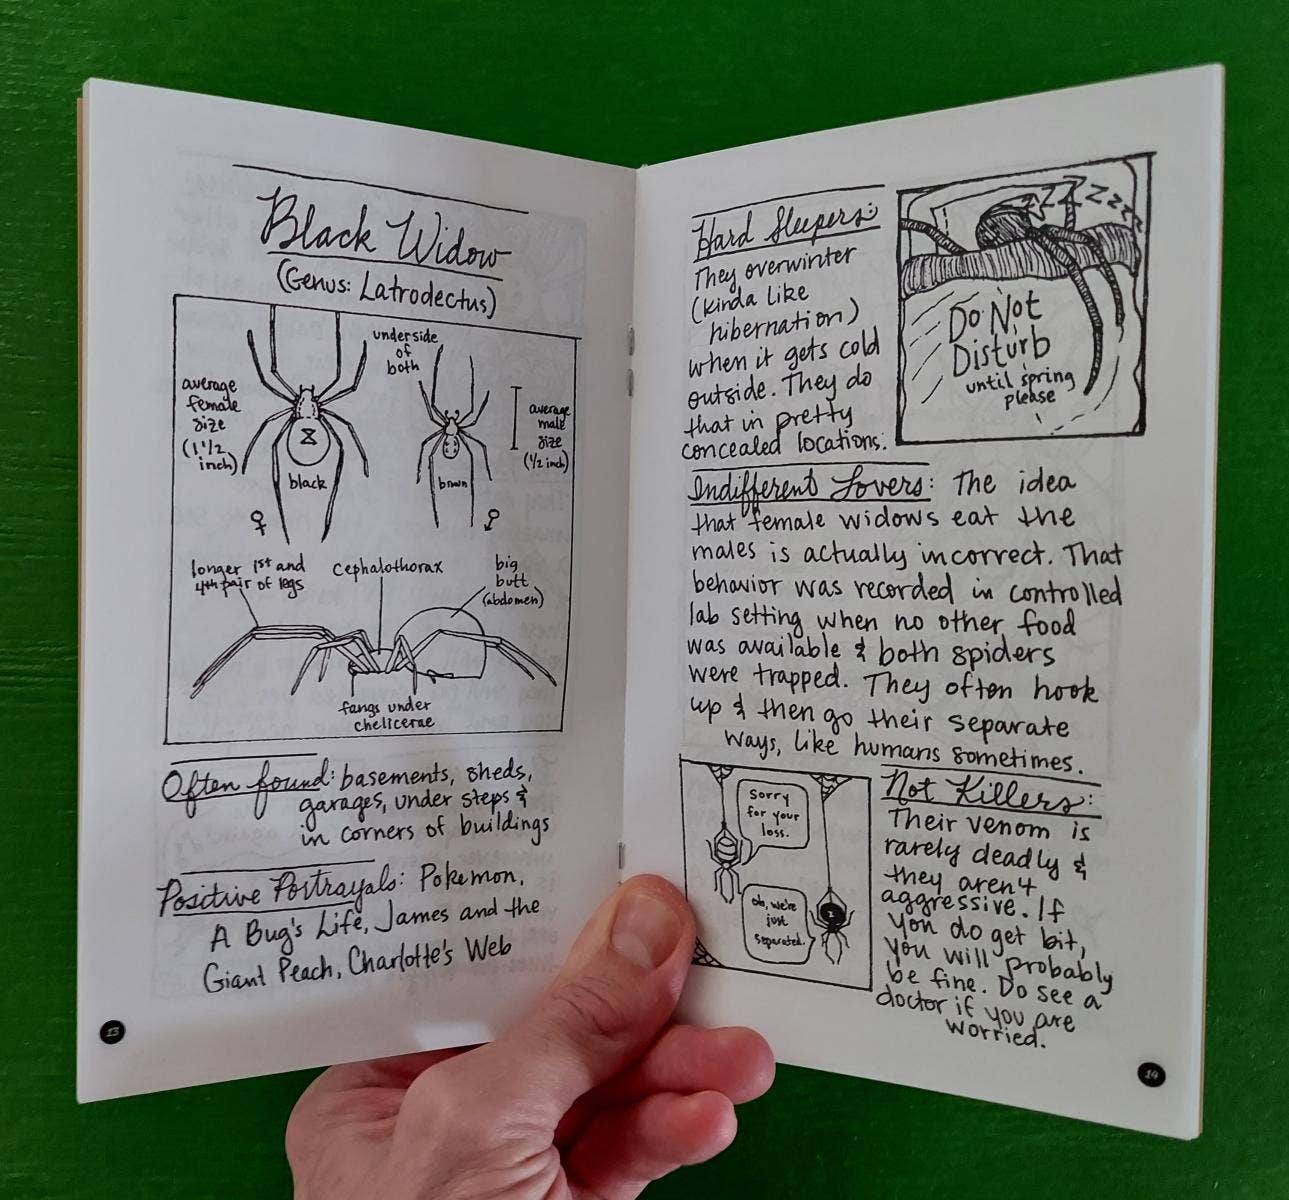 Black Widow
(Genus: Latrodectus)
underside
of
both
average
female
size
(1 1/2
inch)
average
male
size
(1/2 inch)
black
brown
♀
♂
longer 1st and
4th pair of legs
cephalothorax
big
butt
(abdomen)
fangs under
chelicerae
Often found: basements, sheds,
garages, under steps &
in corners of buildings
Positive Portrayals: Pokemon,
A Bug's Life, James and the
Giant Peach, Charlotte's Web
13
Hard Sleepers:
They overwinter
(kinda like
hibernation)
when it gets cold
outside. They do
that in pretty
concealed locations.
ZZZZZzzzz
Do Not
Disturb
until spring
please
Indifferent Lovers: The idea
that female widows eat the
males is actually incorrect. That
behavior was recorded in controlled
lab setting when no other food
was available & both spiders
were trapped. They often hook
up & then go their separate
ways, like humans sometimes.
Sorry
for your
loss.
oh, we're
just
separated.
Not Killers:
Their venom is
rarely deadly &
they aren't
aggressive. If
you do get bit,
you will probably
be fine. Do see a
doctor if you are
worried.
14